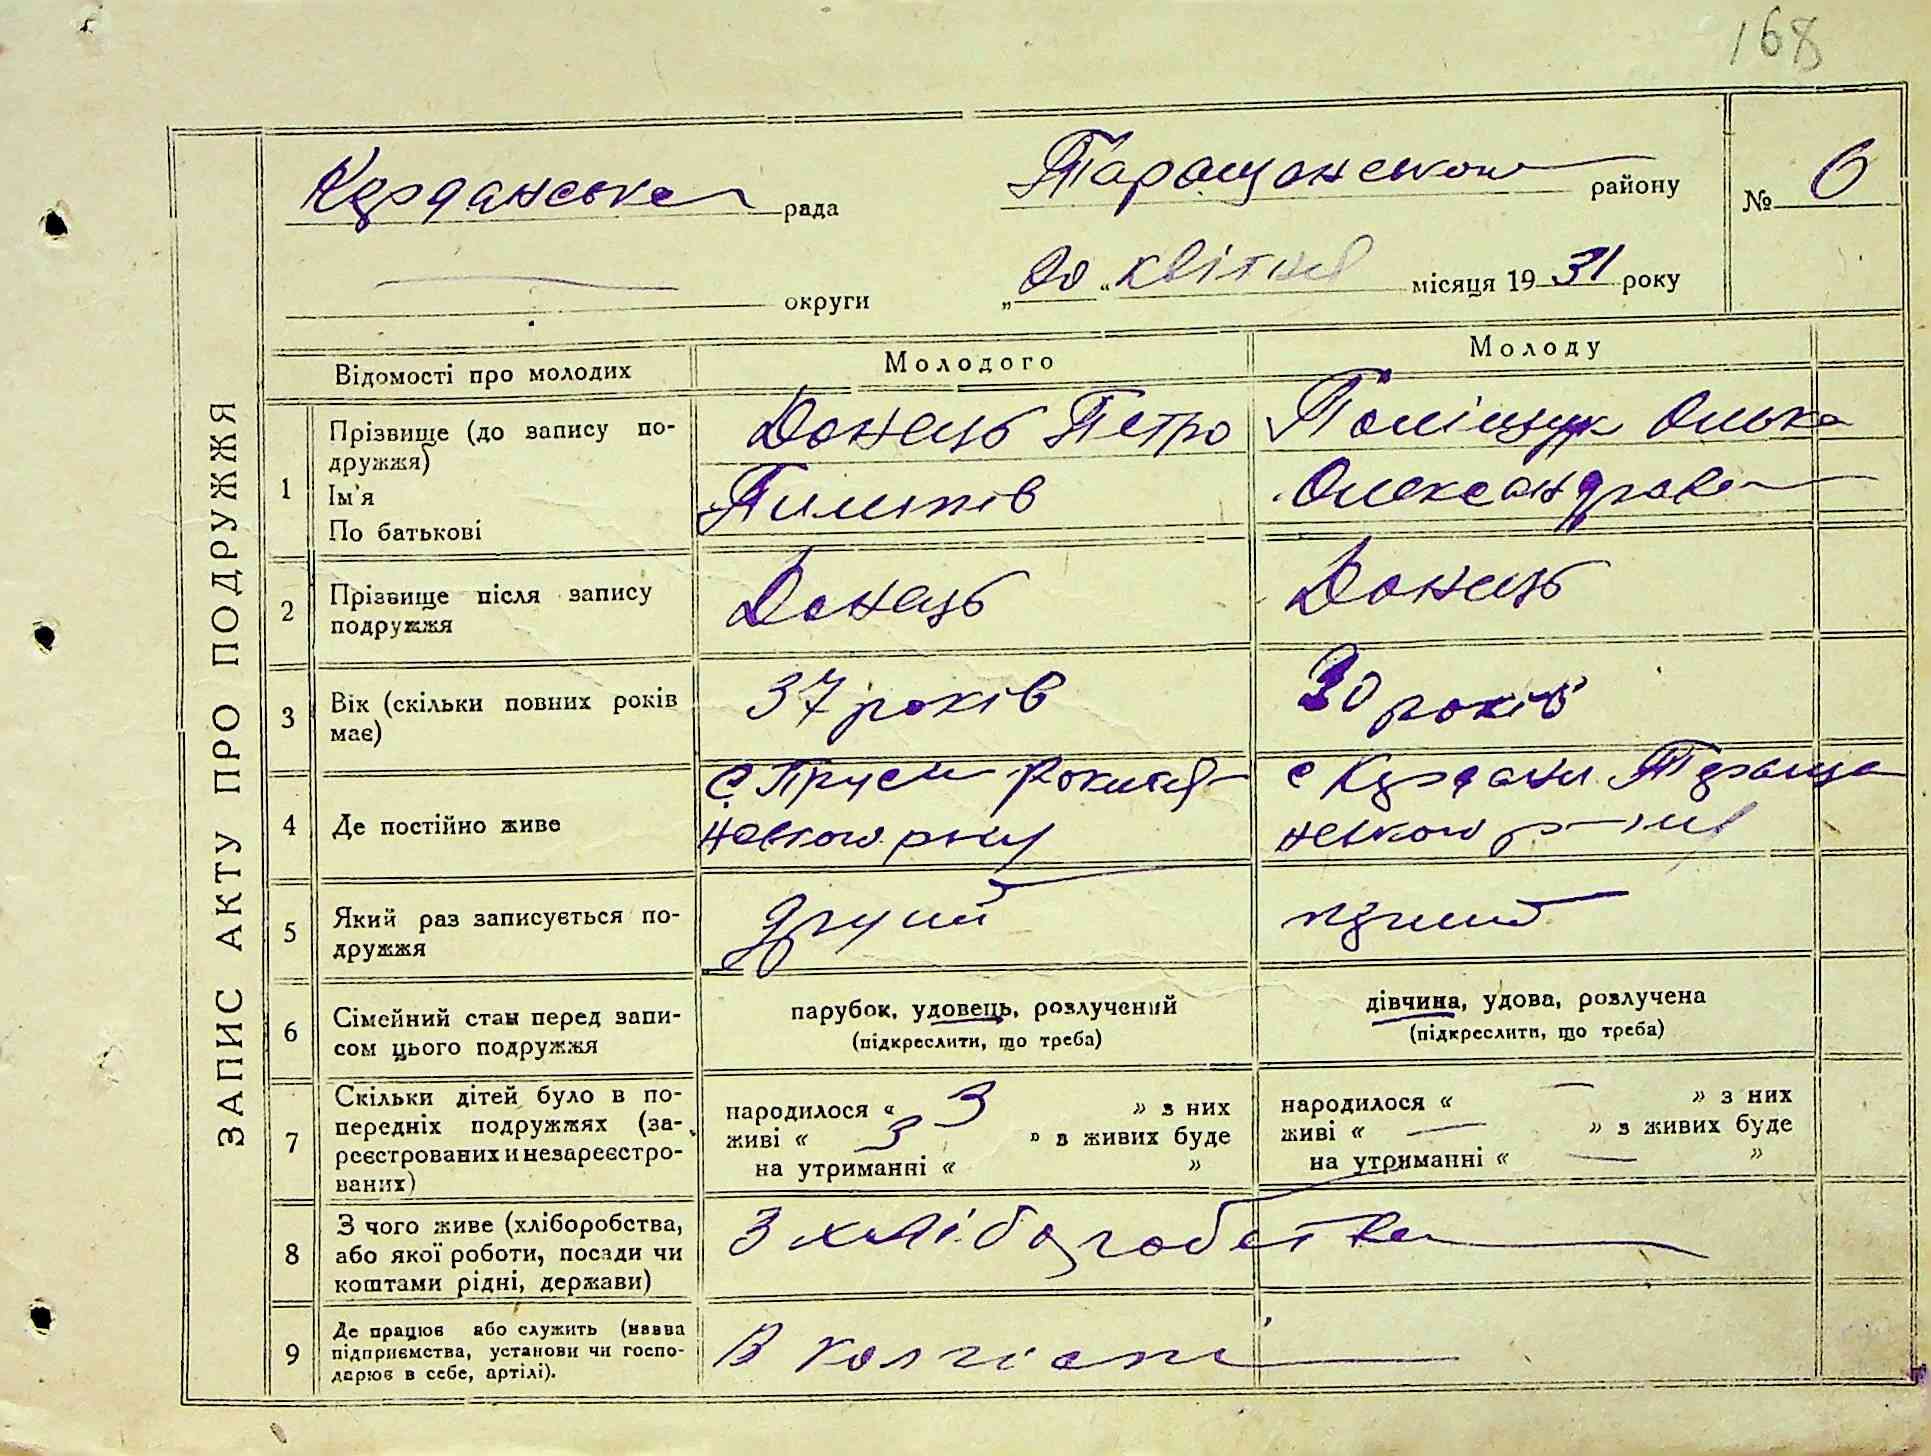 168
ЗАПИС АКТУ ПРО ПОДРУЖЖЯ
Курданська рада
Таращанського району
№ 6
округи
„20“ квітня місяця 1931 року
Відомості про молодих
Молодого
Молоду
1
Прізвище (до запису по-
дружжя)
Ім'я
По батькові
Донець Петро
Пилипів
Поліщук Олька
Олександрова
2
Прізвище після запису
подружжя
Донець
Донець
3
Вік (скільки повних років
має)
37 років
30 років
4
Де постійно живе
с. Пруси Рокитя-
нського р-ну
с Курдани Тараща
нського р-ну
5
Який раз записується по-
дружжя
другий
перший
6
Сімейний стан перед запи-
сом цього подружжя
парубок, удовець, розлучений
(підкреслити, що треба)
дівчина, удова, розлучена
(підкреслити, що треба)
7
Скільки дітей було в по-
передніх подружжях (за-
реєстрованих и незареєстро-
ваних)
народилося « 3 » з них
живі « 3 » в живих буде
на утриманні « »
народилося « — » з них
живі « — » з живих буде
на утриманні « — »
8
З чого живе (хліборобства,
або якої роботи, посади чи
коштами рідні, держави)
З хліборобства
9
Де працює або служить (назва
підприємства, установи чи госпо-
дарює в себе, артілі).
В колгоспі